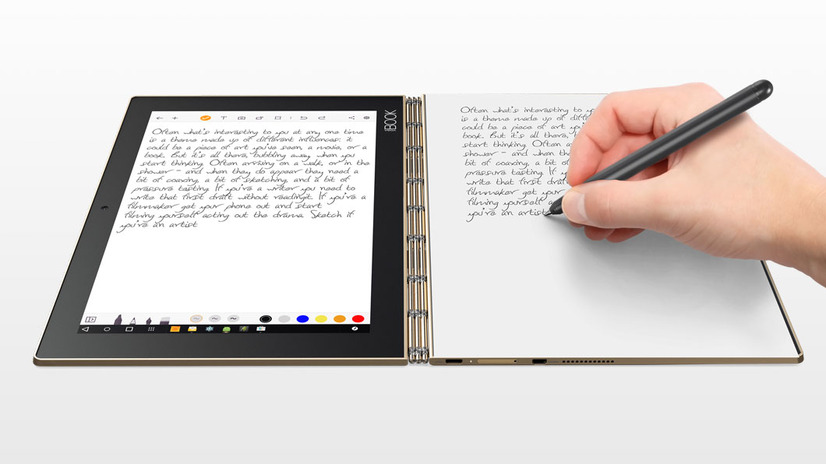 BOOK
Often what's interesting to you at any one time
is a theme made up of different influences: it
could be a piece of art you've seen, a movie, or a
book. But it's all there, bubbling away when you
start thinking. Often arriving on a walk, or in the
shower - and when they do appear they need a
bit of coaxing, a bit of sketching, and a bit of
pressure testing. If you're a writer you need to
write that first draft without reading it. If you're a
filmmaker get your phone out and start
filming yourself acting out the drama. Sketch if
you're an artist
Often what's interesting to
is a theme made up of
could be a piece of art
book. But it's all there,
start thinking. Often
shower - and when
bit of coaxing, a bit
pressure testing. If
write that first
filmmaker get your
filming yourself
you're an artist